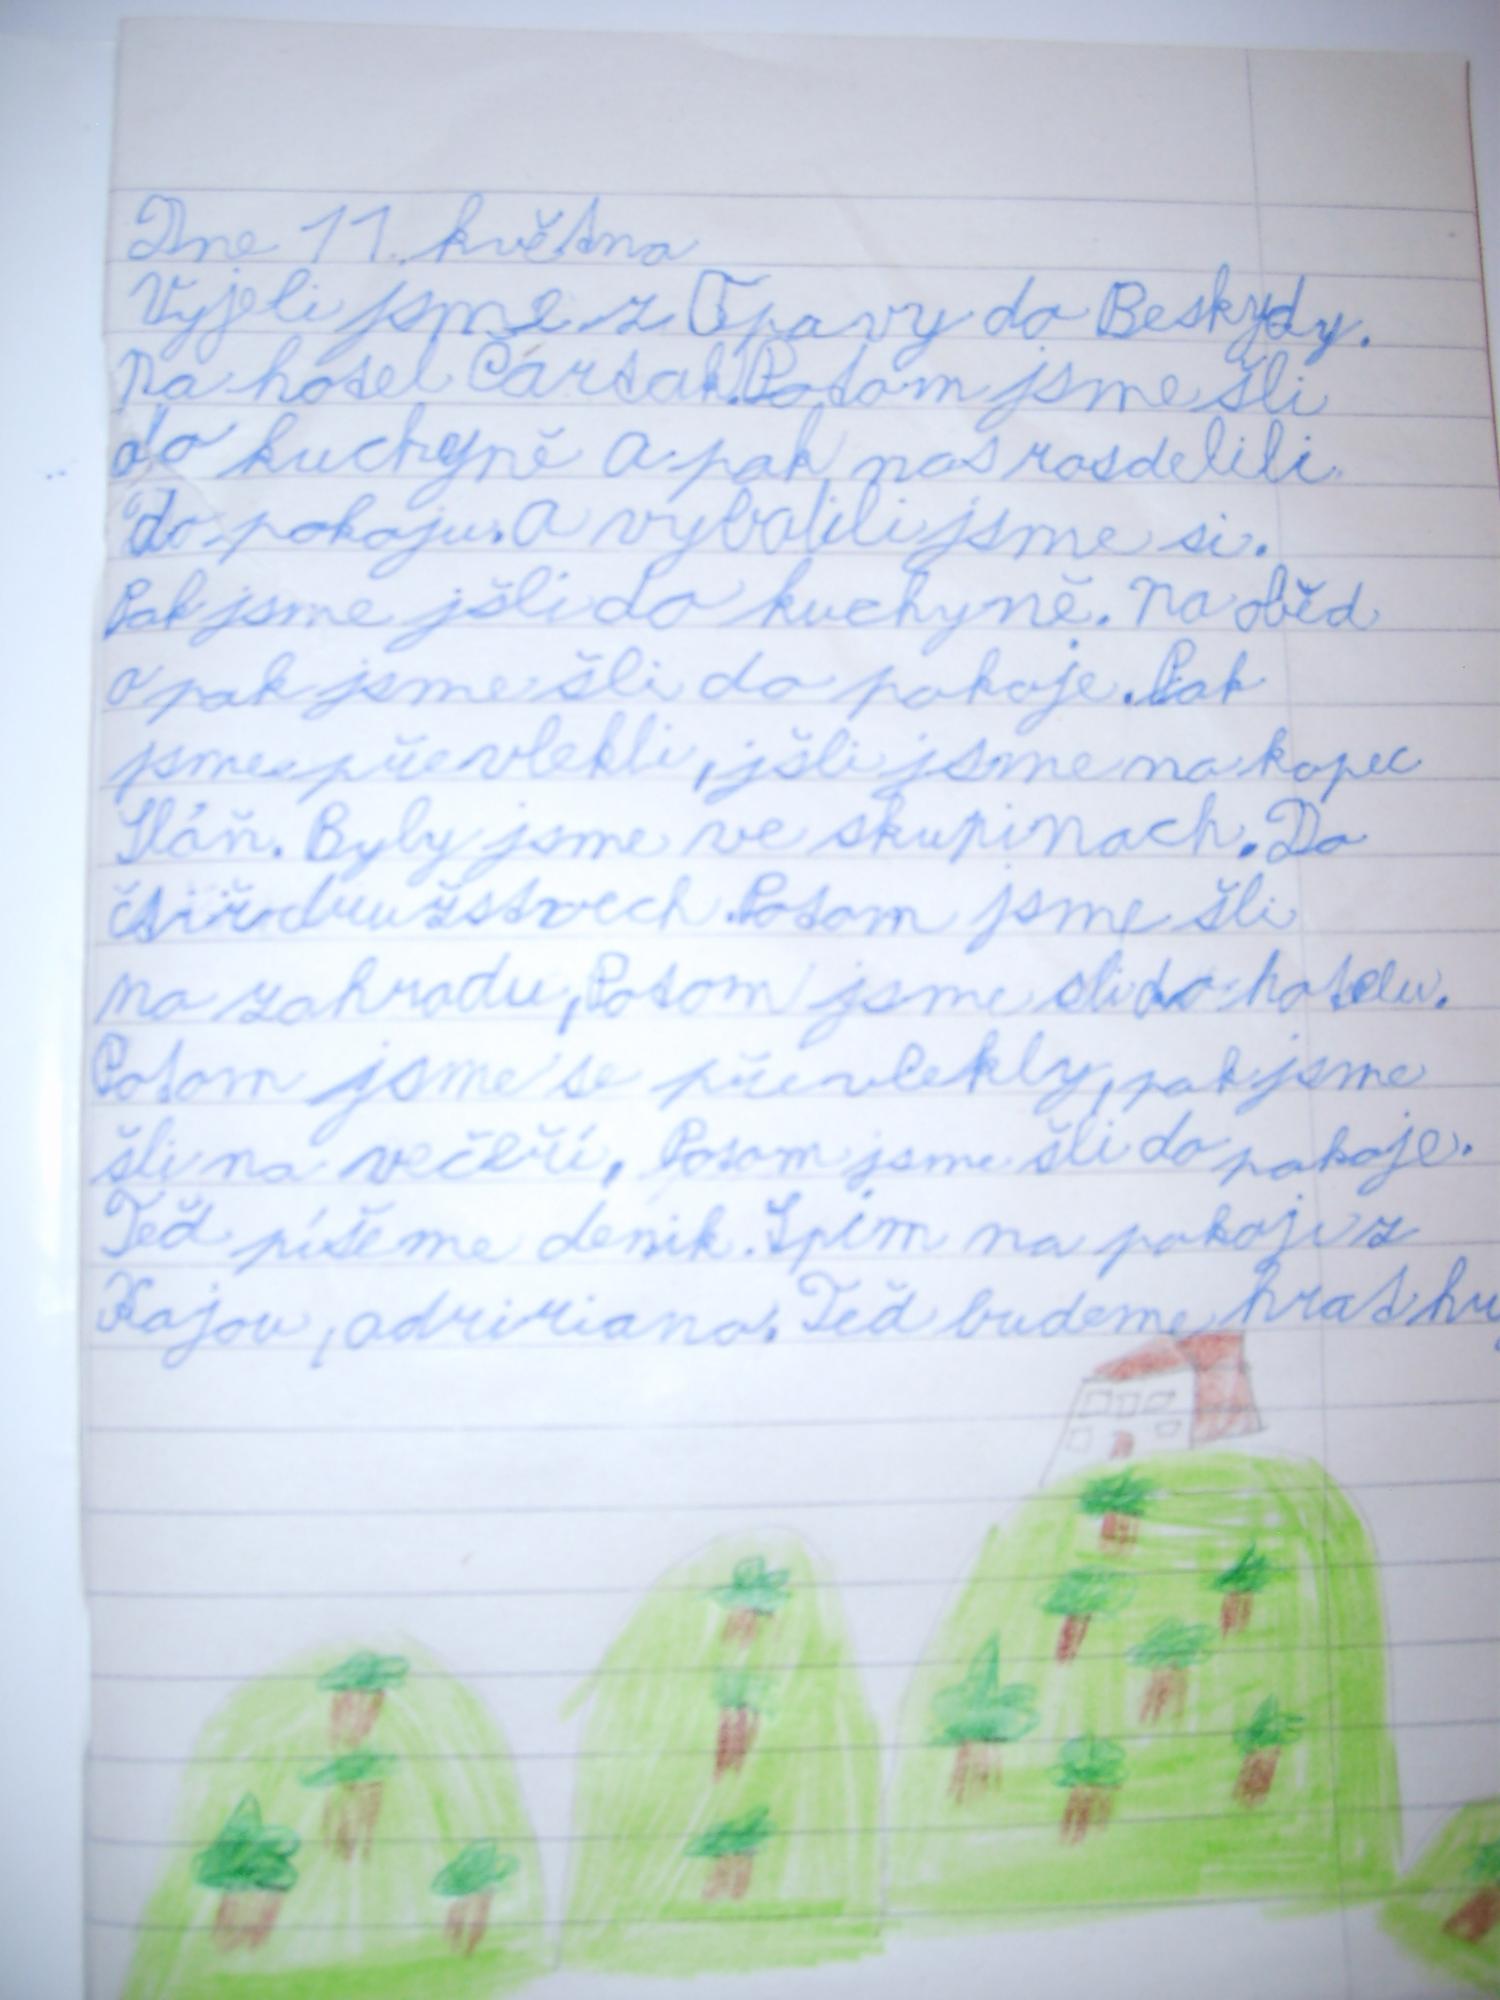 Dne 11. května
Vyjeli jsme z Opavy do Beskydy.
Na hotel Čarták. Potom jsme šli
do kuchyně a pak nas rosdelili
do pokoju. a vybalili jsme si.
Pak jsme jšli do kuchyně. Na oběd
a pak jsme šli do pokoje. Pak
jsme převlekli, jšli jsme na kopec
Sláň. Byly jsme ve skupinach. Do
čtiř družstvech. Potom jsme šli
na zahradu, Potom jsme sli do hotelu.
Potom jsme se převlekly, pak jsme
šli na večeří. Potom jsme šli do pokoje.
Teď píšeme denik. Spím na pokoji z
Kajou, adririana. Teď budeme hrat